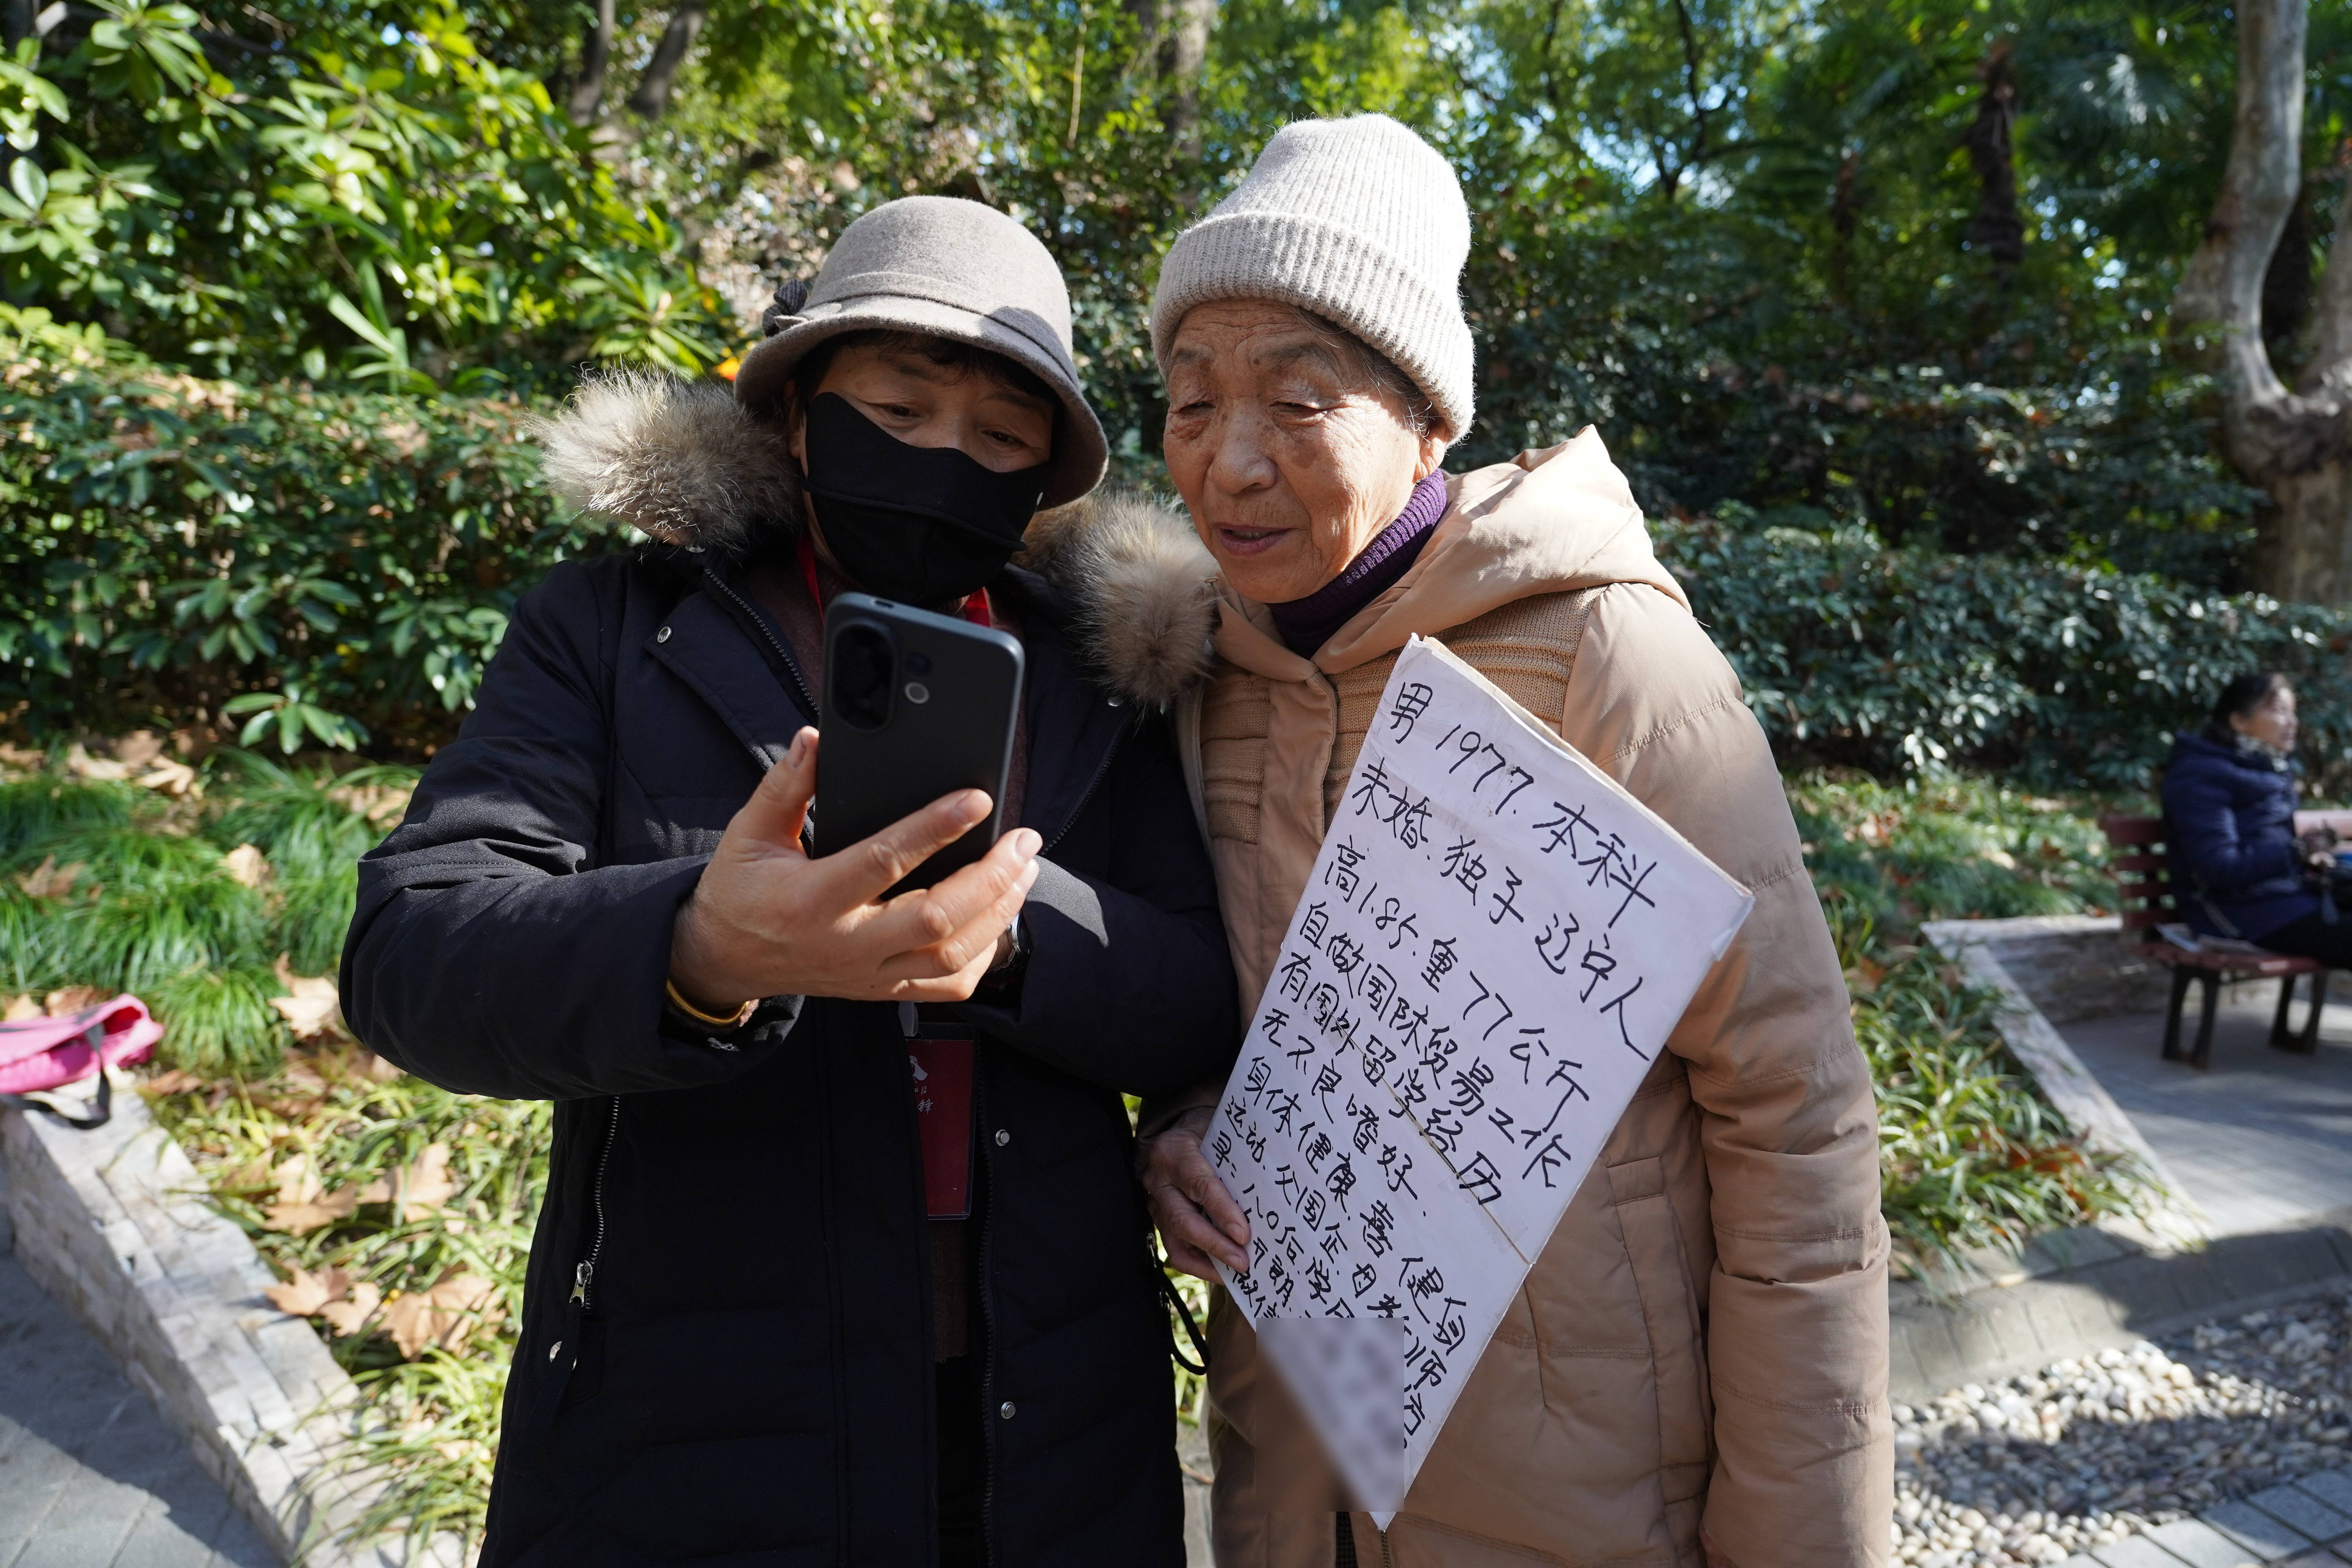 男 1977. 本科
未婚. 独子 辽宁人
高1.85. 重77公斤
自做国际贸易工作
有国外留学经历
无不良嗜好.
身体健康. 喜 健身
运动. 父国企. 母 教师
寻: 八0后. 学历
微信
锋